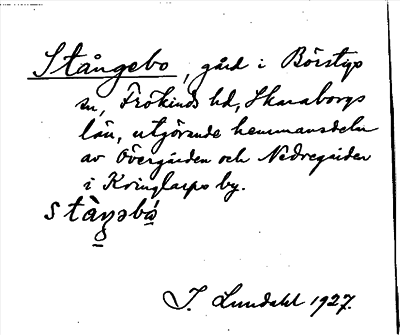 Stångebo, gård i Börstigs
sn, Frökinds hd, Skaraborgs
län, utgörande hemmansdelar
av Övergården och Nedregården
i Kringlarps by.
stàŋəbó
I. Lundahl 1927.